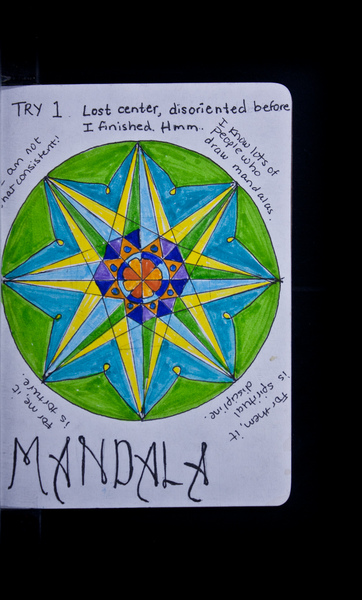 TRY 1. Lost center, disoriented before
I finished. Hmm..
I know lots of
people who
draw mandalas.
For them, it
is spiritual
discipline.
For me, it
is torture.
am not
that consistent!
MANDALA